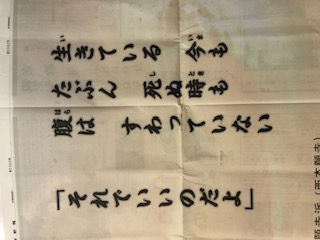 生きている 今も
たぶん 死ぬ時も
腹は すわっていない
「それでいいのだよ」